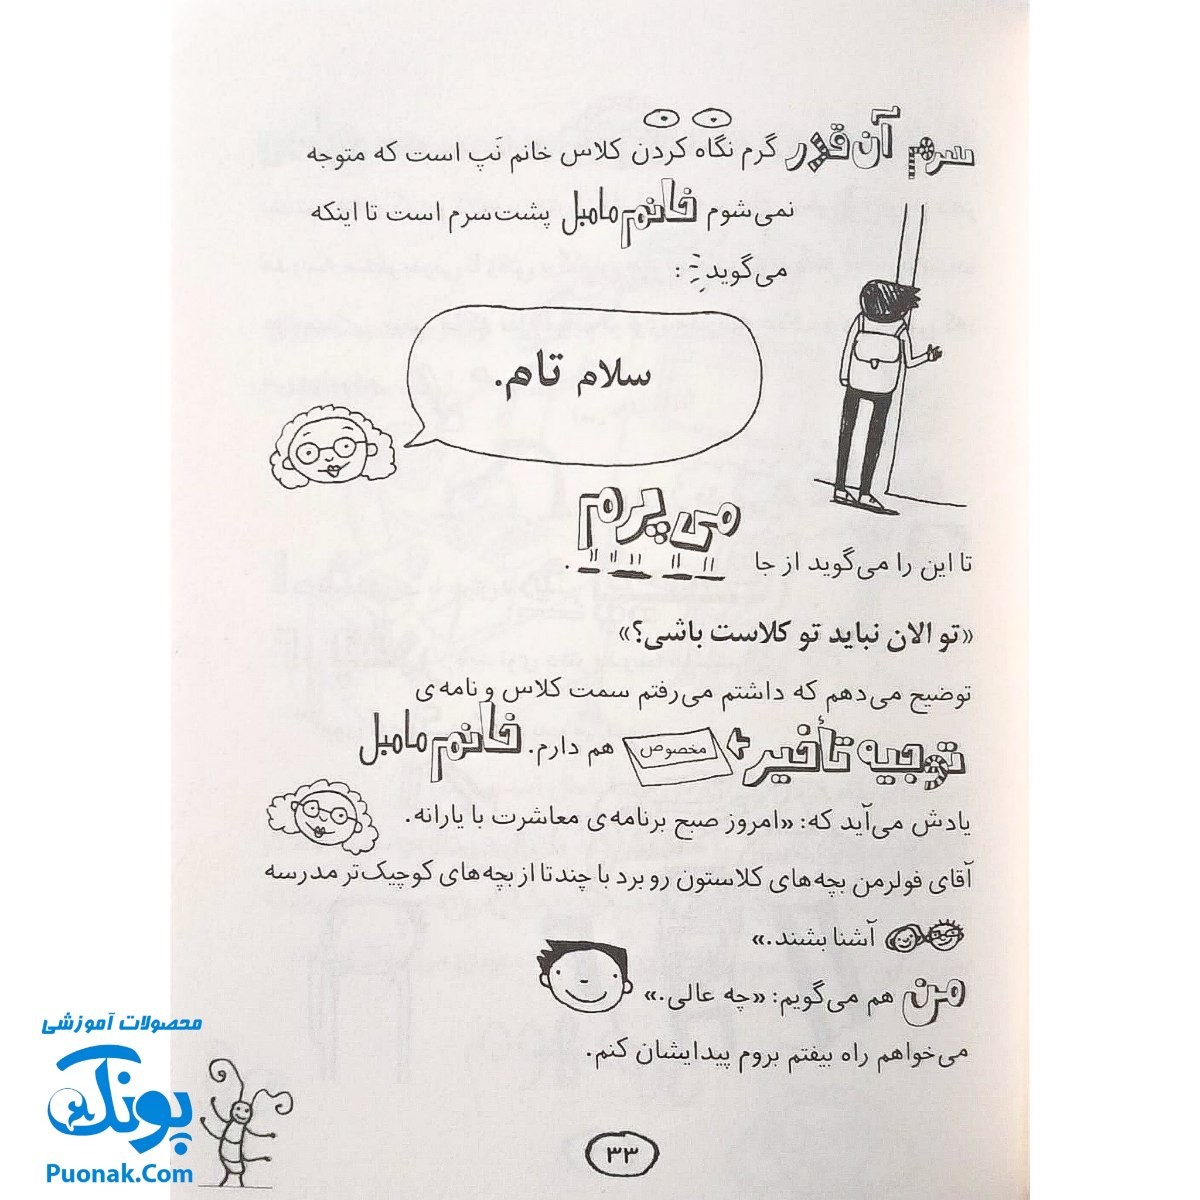 سرم آن‌قدر گرم نگاه کردن کلاس خانم نَپ است که متوجه
نمی‌شوم خانم مامبل پشت‌سرم است تا اینکه
می‌گوید:
سلام تام.
تا این را می‌گوید از جا می‌پرم.
«تو الان نباید تو کلاست باشی؟»
توضیح می‌دهم که داشتم می‌رفتم سمت کلاس و نامه‌ی
توجیه تأخیر مخصوص هم دارم. خانم مامبل
یادش می‌آید که: «امروز صبح برنامه‌ی معاشرت با یارانه.
آقای فولرمن بچه‌های کلاستون رو برد با چندتا از بچه‌های کوچیک‌تر مدرسه
آشنا بشند.»
من هم می‌گویم: «چه عالی.»
می‌خواهم راه بیفتم بروم پیدایشان کنم.
۳۳
محصولات آموزشی
پونک
Puonak.Com